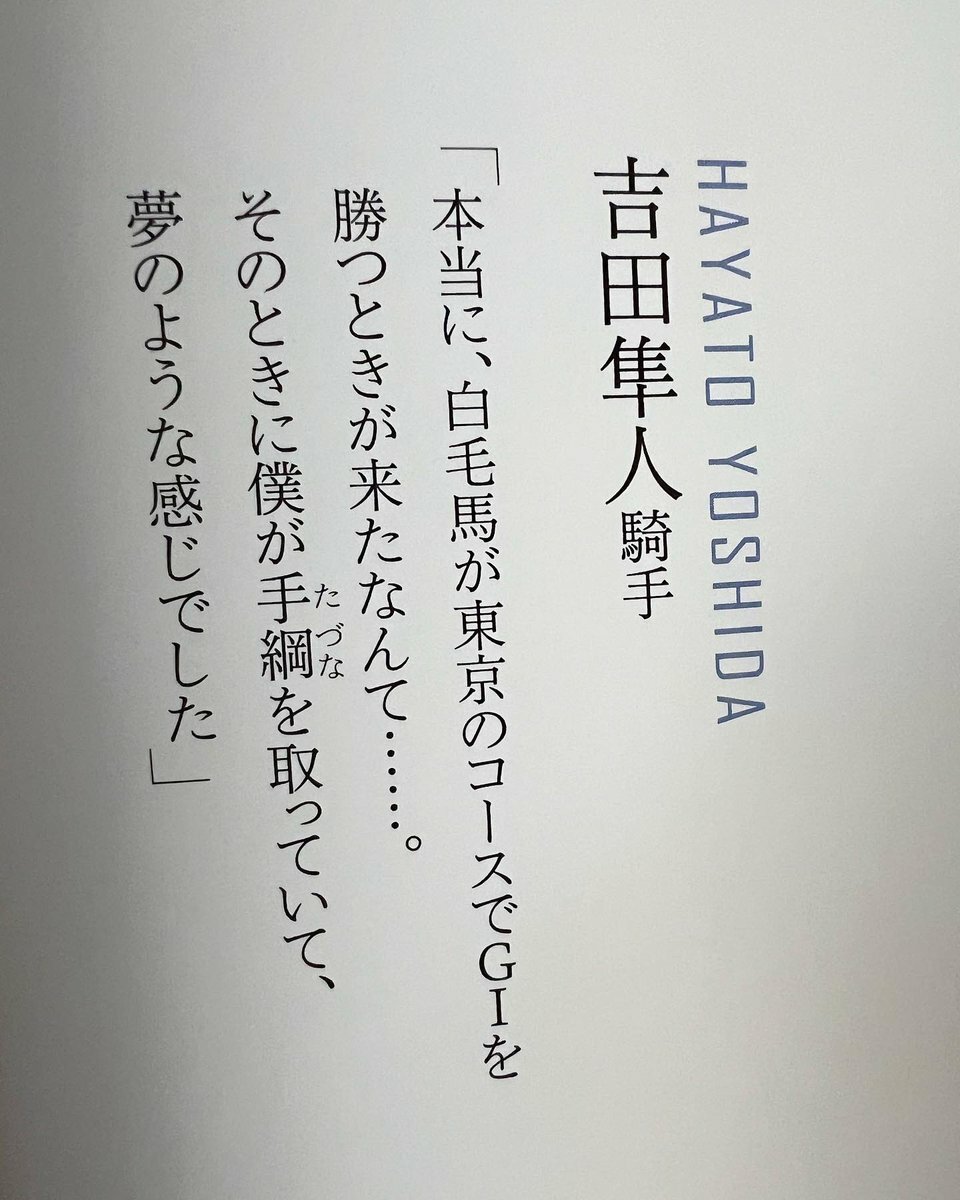 HAYATO YOSHIDA
吉田隼人騎手
「本当に、白毛馬が東京のコースでGIを
勝つときが来たなんて……。
そのときに僕が手綱を取っていて、
たづな
夢のような感じでした」